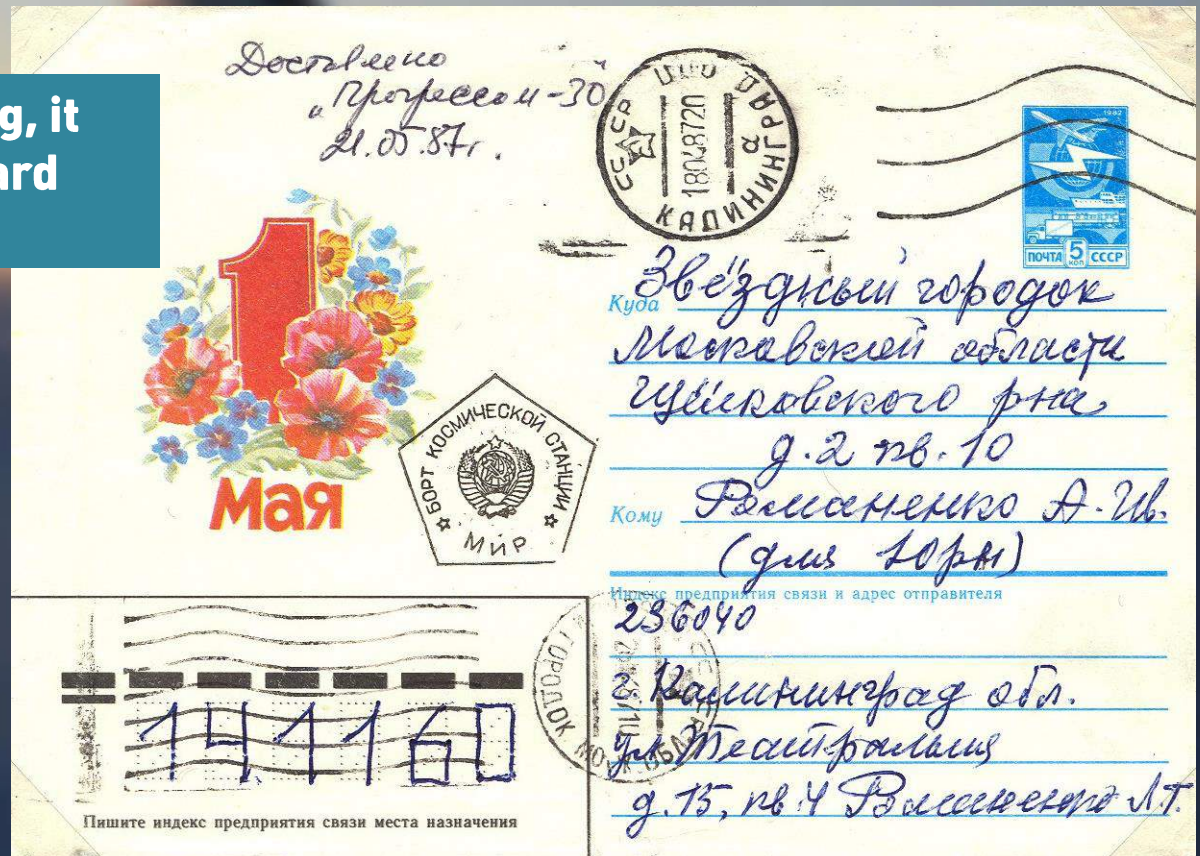 g, it
ard
Доставлено
„Прогрессом-30"
21.05.87г.
СССР
ЦПО КАЛИНИНГРАД
18048720
а
1982
ПОЧТА 5 КОП СССР
1
Мая
БОРТ КОСМИЧЕСКОЙ СТАНЦИИ
МИР
Куда Звёздный городок
Московской области
Щёлковского рна
д.2 кв.10
Кому Романенко А.Ив.
(для Юры)
Индекс предприятия связи и адрес отправителя
236040
г. Калининград обл.
ул. Театральная
д.15, кв 4 Романенко Л.Г.
ГОРОДОК МОСК. ОБЛ.
141160
Пишите индекс предприятия связи места назначения